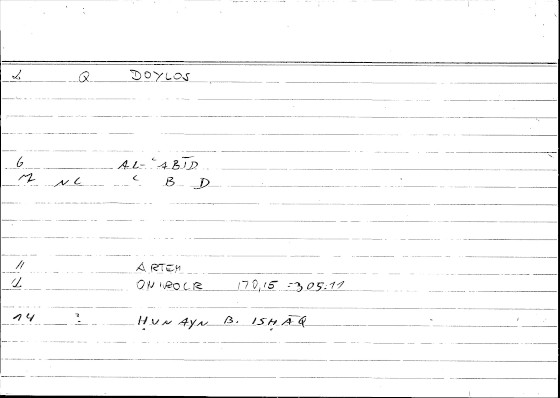 1 Q DOYLOS
6 AL-ʿABĪD
NC ʿ B D
11 ARTEM
ONIROCR 170,15 = 305.11
14 ? ḤUNAYN B. ISḤĀQ